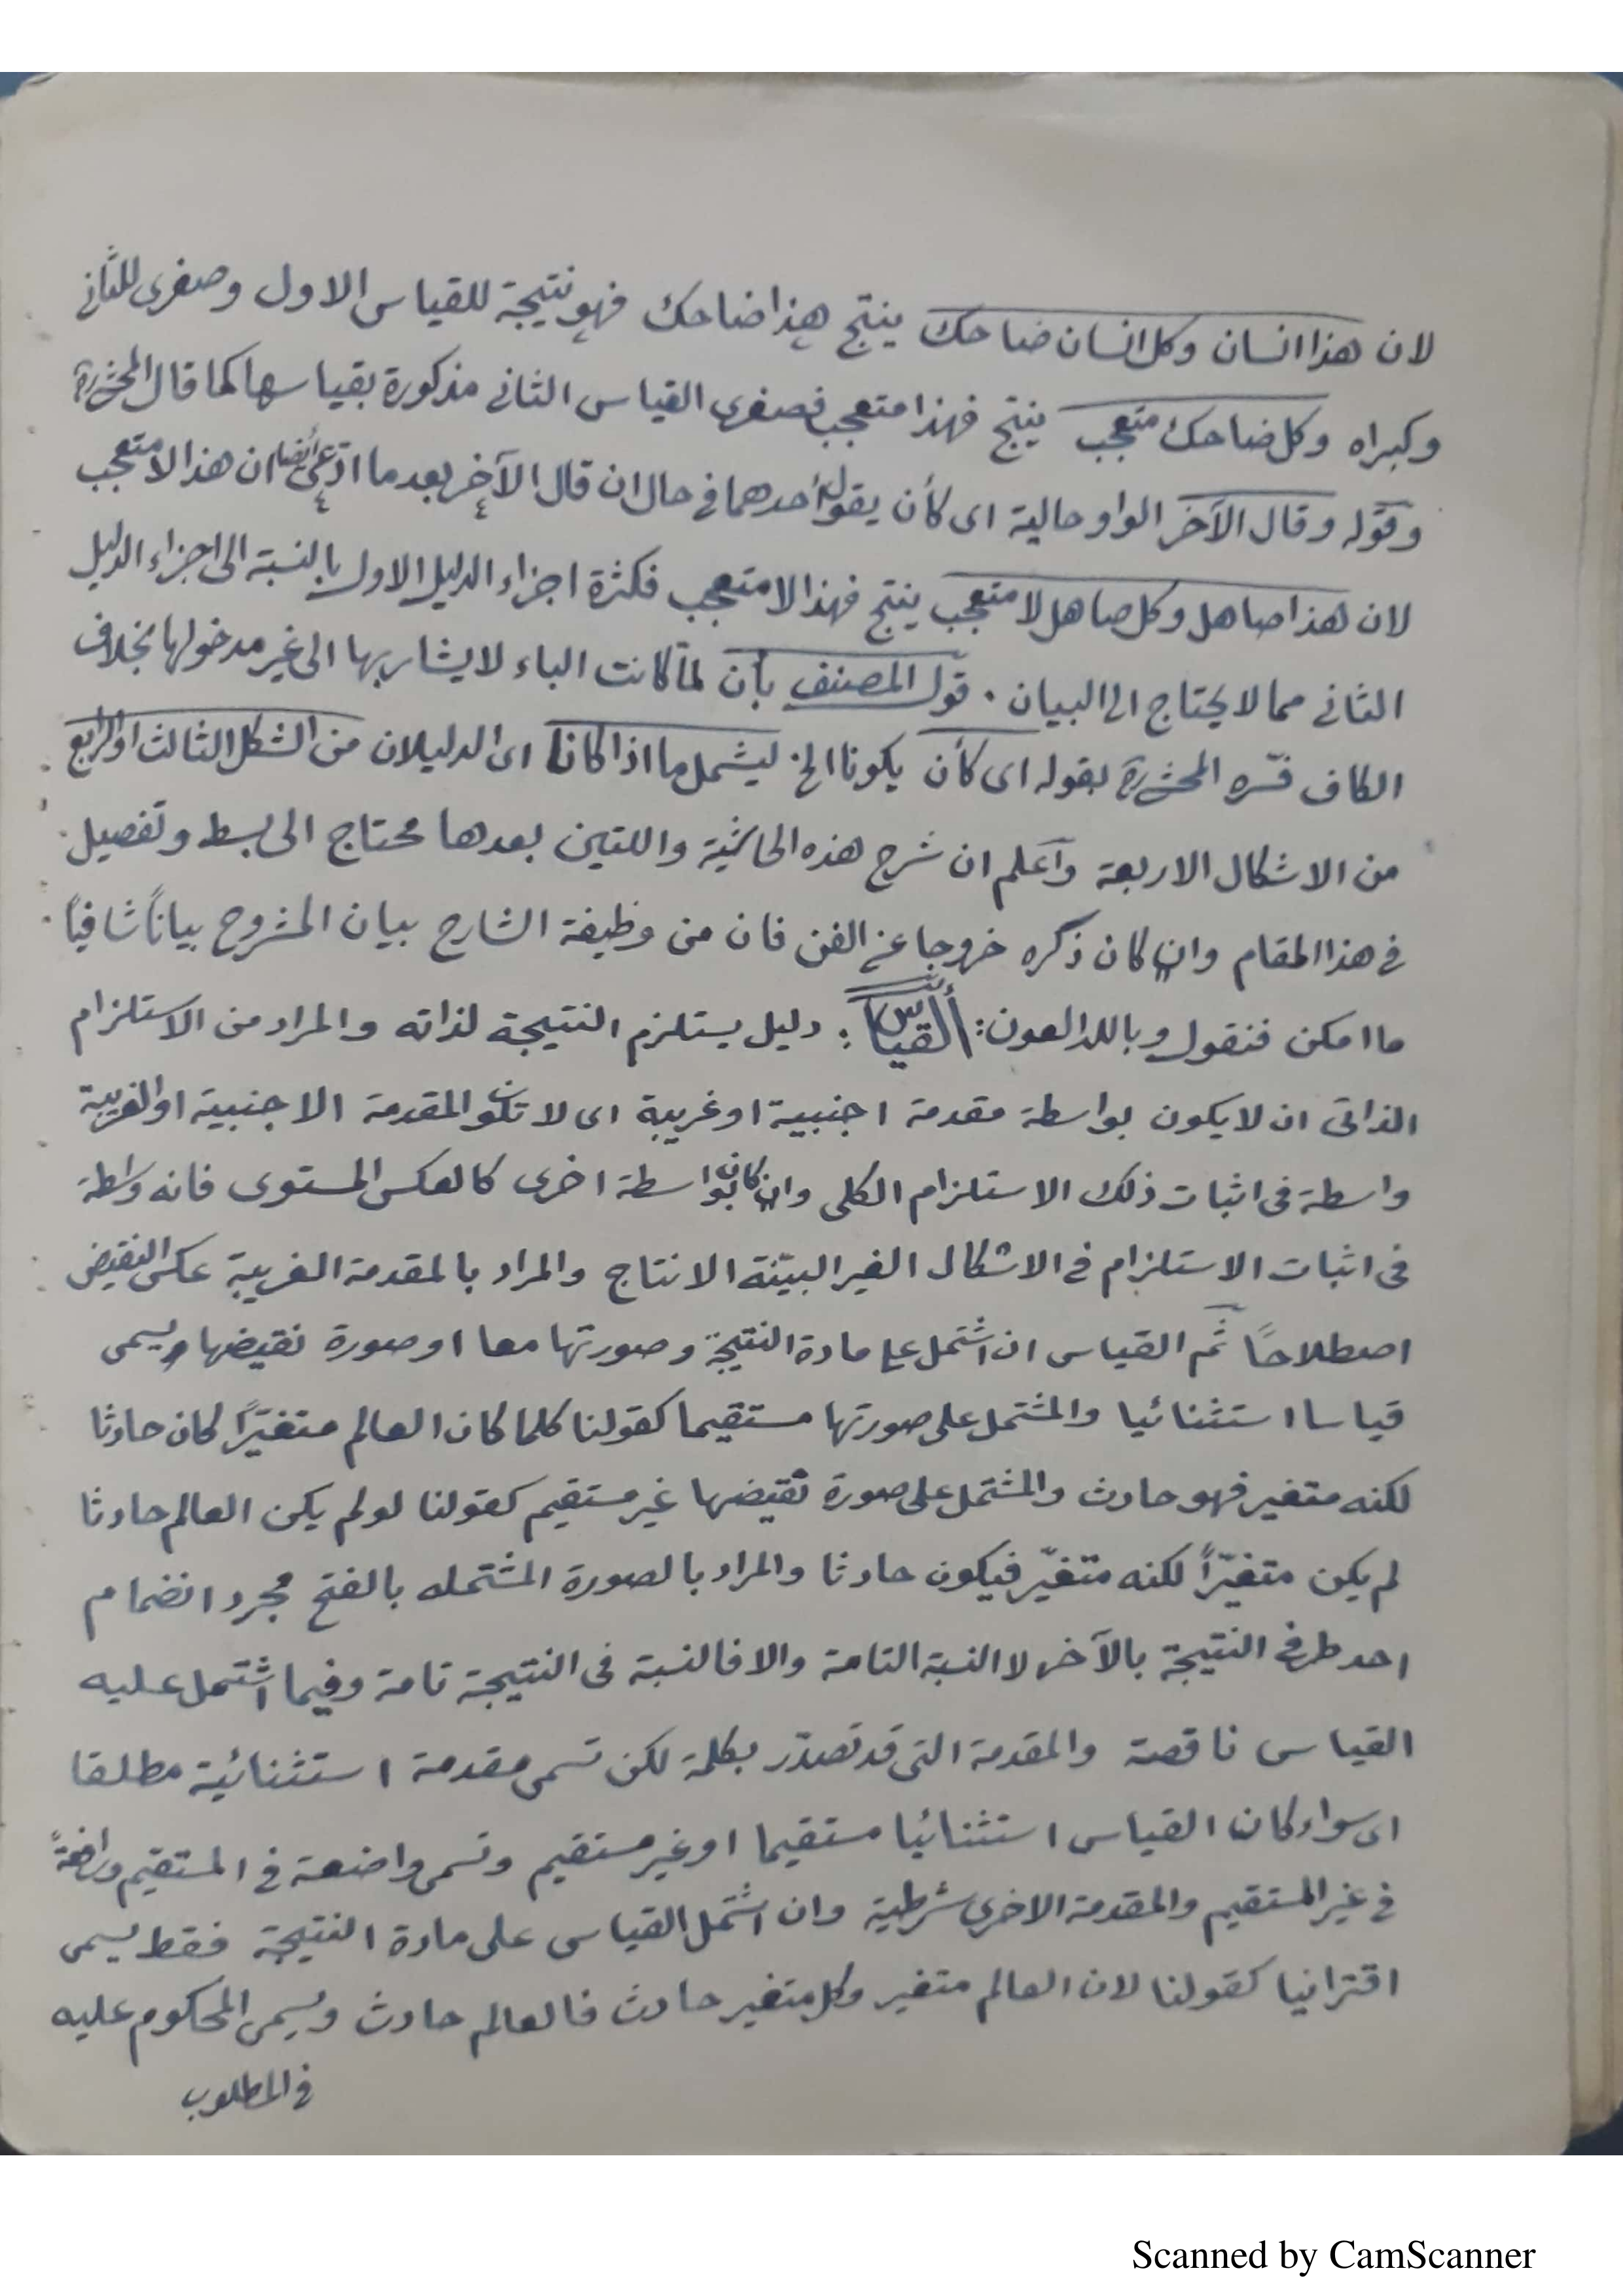 لان هذا انسان وكل انسان ضاحك ينتج هذا ضاحك فهو نتيجة للقياس الاول وصغرى للثاني
وكبراه وكل ضاحك متعجب ينتج فهذا متعجب فصغرى القياس الثاني مذكورة بقياسها كما قال المحشى
وقوله وقال الآخر الواو حالية اى كأن يقول أحدهما في حال ان قال الآخر بعد ما ادّعى أيضا ان هذا لا متعجب
لان هذا صاهل وكل صاهل لا متعجب ينتج فهذا لا متعجب فكثرة اجزاء الدليل الاول بالنسبة الى اجزاء الدليل
الثاني مما لا يحتاج الى البيان . قول المصنف بأن لمّا كانت الباء لا يشار بها الى غير مدخولها بخلاف
الكاف فسّره المحشى بقوله اى كأن يكونا الخ ليشمل ما اذا كانا اى الدليلان من الشكل الثالث او الرابع
من الاشكال الاربعة وآعلم ان شرح هذه الحاشية واللتين بعدها محتاج الى بسط وتفصيل
في هذا المقام وان كان ذكره خروجا عن الفن فان من وظيفة الشارح بيان المشروح بياناً شافياً
ما امكن فنقول وبالله العون : ألقياس : دليل يستلزم النتيجة لذاته والمراد من الاستلزام
الذاتى ان لا يكون بواسطة مقدمة اجنبية او غريبة اى لا تكون المقدمة الاجنبية او الغريبة
واسطة فى اثبات ذلك الاستلزام الكلى وان كان بواسطة اخرى كالعكس المستوى فانه واسطة
فى اثبات الاستلزام في الاشكال الغير البيّنة الانتاج والمراد بالمقدمة الغريبة عكس النقيض
اصطلاحاً ثم القياس ان اشتمل على مادة النتيجة وصورتها معا او صورة نقيضها ويسمى
قياسا استثنائيا والمشتمل على صورتها مستقيما كقولنا كلما كان العالم متغيّراً كان حادثا
لكنه متغير فهو حادث والمشتمل على صورة نقيضها غير مستقيم كقولنا لو لم يكن العالم حادثا
لم يكن متغيّراً لكنه متغيّر فيكون حادثا والمراد بالصورة المشتمله بالفتح مجرد انضمام
احد طرفي النتيجة بالآخر لا النسبة التامة والا فالنسبة فى النتيجة تامة وفيما اشتمل عليه
القياس ناقصة والمقدمة التى قد تصدّر بكلمة لكن تسمى مقدمة استثنائية مطلقا
اى سواء كان القياس استثنائيا مستقيما او غير مستقيم وتسمى واضعة في المستقيم ورافعةً
في غير المستقيم والمقدمة الاخرى شرطية وان اشتمل القياس على مادة النتيجة فقط يسمى
اقترانيا كقولنا لان العالم متغير وكل متغير حادث فالعالم حادث ويسمى المحكوم عليه
في المطلوب
Scanned by CamScanner